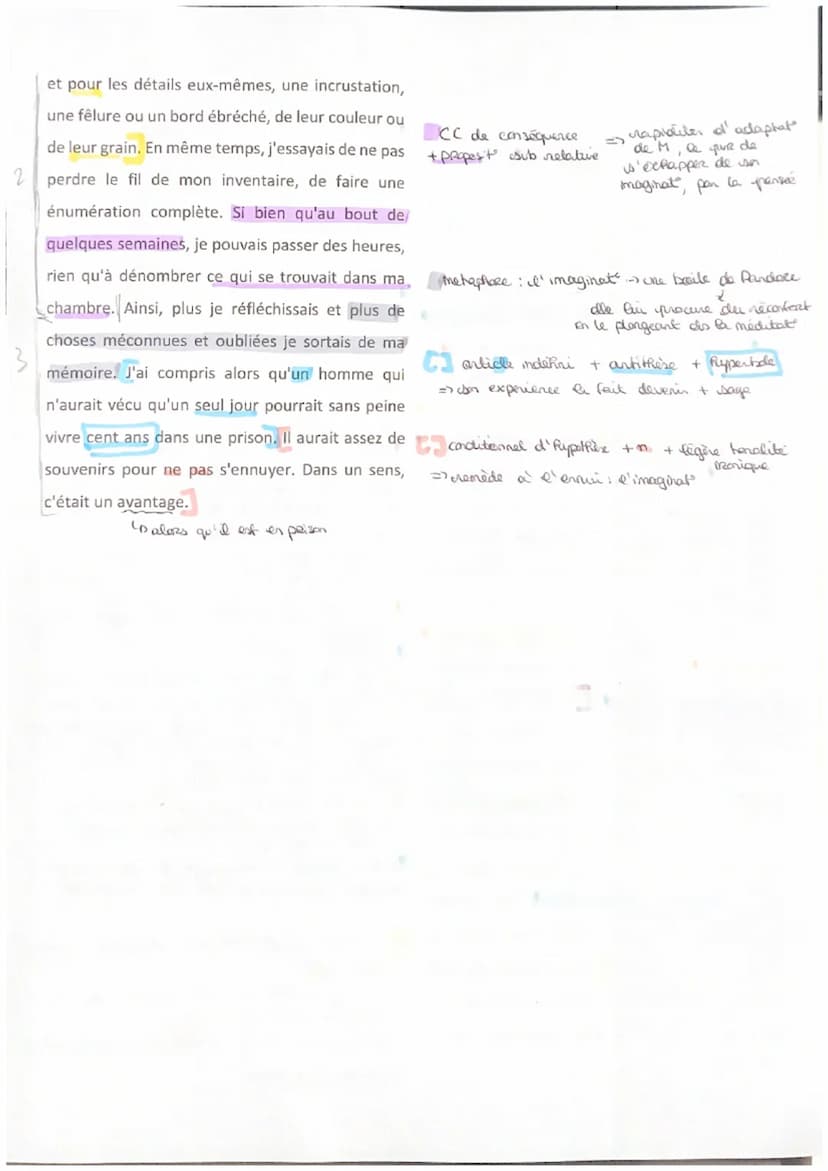 et pour les détails eux-mêmes, une incrustation,
une fêlure ou un bord ébréché, de leur couleur ou
de leur grain. En même temps, j'essayais de ne pas
perdre le fil de mon inventaire, de faire une
énumération complète. Si bien qu'au bout de
quelques semaines, je pouvais passer des heures,
rien qu'à dénombrer ce qui se trouvait dans ma
chambre. Ainsi, plus je réfléchissais et plus de
choses méconnues et oubliées je sortais de ma
mémoire. J'ai compris alors qu'un homme qui
n'aurait vécu qu'un seul jour pourrait sans peine
vivre cent ans dans une prison. Il aurait assez de
souvenirs pour ne pas s'ennuyer. Dans un sens,
c'était un avantage.
↳ alors qu'il est en prison
2
3
CC de conséquence
+ proposit° sub relative
=> rapidités d'adaptat°
de M, ce que de
s'échapper de son
imaginat°, par la pensée
métaphore : l'imaginat° → une boîte de Pandore
↓
elle lui procure du réconfort
en le plongeant ds la méditat°
[ ] article indéfini + antithèse + hyperbole
=> son expérience le fait devenir + sage
[ ] conditionnel d'hypothèse + n + légère tonalité
ironique
=> remède à l'ennui : l'imaginat°